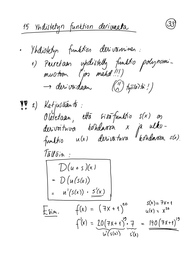 15 Yhdistetyn funktion derivaatta
33
• Yhdistetyn funktion derivoiminen:
1) Puretaan yhdistetty funktio polynomi-
muotoon (jos mahd!!!)
→ derivoidaan. työläs!
!! 2) Ketjusääntö:
Oletetaan, että sisäfunktio s(x) on
derivoituva kohdassa x ja ulko-
funktio u(x) derivoituva kohdassa s(x)
Tällöin:
D(u∘s)(x)
= D u(s(x))
= u'(s(x)) · s'(x)
Esim. f(x) = (7x+9)²⁰
s(x) = 7x+9
u(x) = x²⁰
f'(x) = 20(7x+9)¹⁹ · 7 = 140(7x+9)¹⁹
u'(s(x)) s'(x)